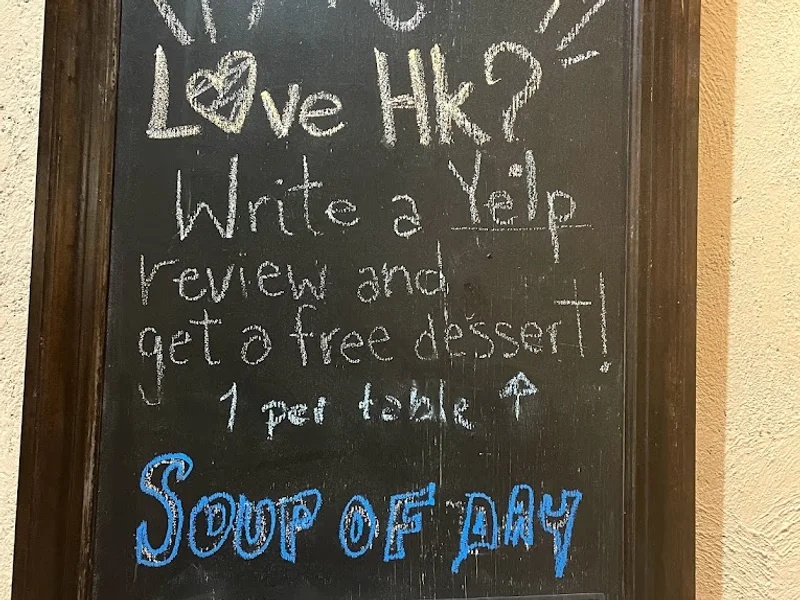 Love Hk?
Write a Yelp
review and
get a free dessert!
1 per table ↑
SOUP OF DAY